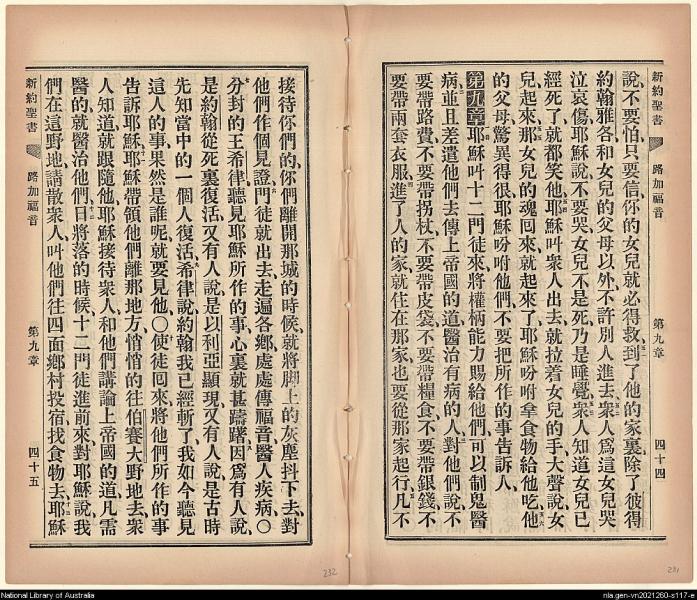 新約聖書 路加福音 第九章 四十四
說、不要怕、只要信、你的女兒就必得救、到了他的家裏、除了彼得
約翰雅各和女兒的父母以外、不許別人進去、衆人爲這女兒哭
泣哀傷、耶穌說、不要哭、女兒不是死、乃是睡覺、衆人知道女兒已
經死了、就都笑他、耶穌叫衆人出去、就拉着女兒的手、大聲說、女
兒起來、那女兒的魂回來、就起來了、耶穌吩咐拿食物給他吃、他
的父母驚異得很、耶穌吩咐他們、不要把所作的事告訴人、
第九章 耶穌叫十二門徒來、將權柄能力賜給他們、可以制鬼醫
病、並且差遣他們去傳上帝國的道、醫治有病的人、對他們說、不
要帶路費、不要帶拐杖、不要帶皮袋、不要帶糧食、不要帶銀錢、不
要帶兩套衣服、進了人的家、就住在那家、也要從那家起行、凡不
接待你們的、你們離開那城的時候、就將脚上的灰塵抖下去、對
他們作個見證、門徒就出去、走遍各鄉、處處傳福音、醫人疾病、〇
分封的王希律、聽見耶穌所作的事、心裏就甚躊躇、因爲有人說、
是約翰從死裏復活、又有人說、是以利亞顯現、又有人說、是古時
先知當中的一個人復活、希律說、約翰我已經斬了、我如今聽見
這人的事、果然是誰呢、就要見他、〇使徒囘來、將他們所作的事
告訴耶穌、耶穌帶領他們離那地方、悄悄的往伯賽大野地去、衆
人知道、就跟隨他、耶穌接待衆人、和他們講論上帝國的道、凡需
醫的、就醫治他們、日將落的時候、十二門徒進前來、對耶穌說、我
們在這野地、請散衆人、叫他們往四面鄉村投宿、找食物去、耶穌
新約聖書 路加福音 第九章 四十五
232
231
National Library of Australia
nla.gen-vn2021260-s117-e